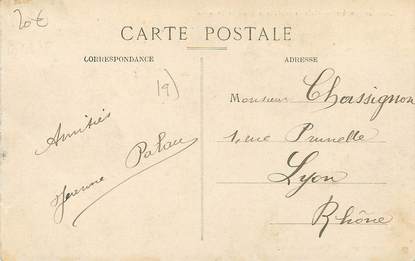 20€
CARTE POSTALE
CORRESPONDANCE
ADRESSE
19)
Amitiés
Palau
Monsieur Chassignon
1, rue Prunelle
Lyon
Rhône